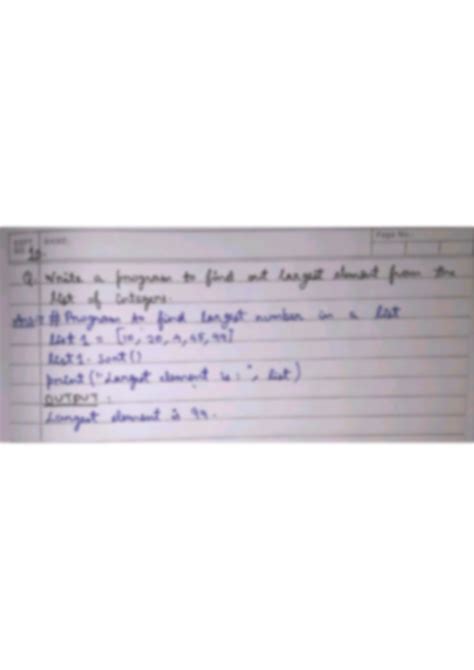 Page No.
10.
Q. Write a program to find out largest element from the
list of integers.
Ans:- # Program to find largest number in a list
list 1 = [10, 20, 4, 45, 99]
list 1. sort ()
print ("Largest element is : ", list)
OUTPUT :
Largest element is 99.